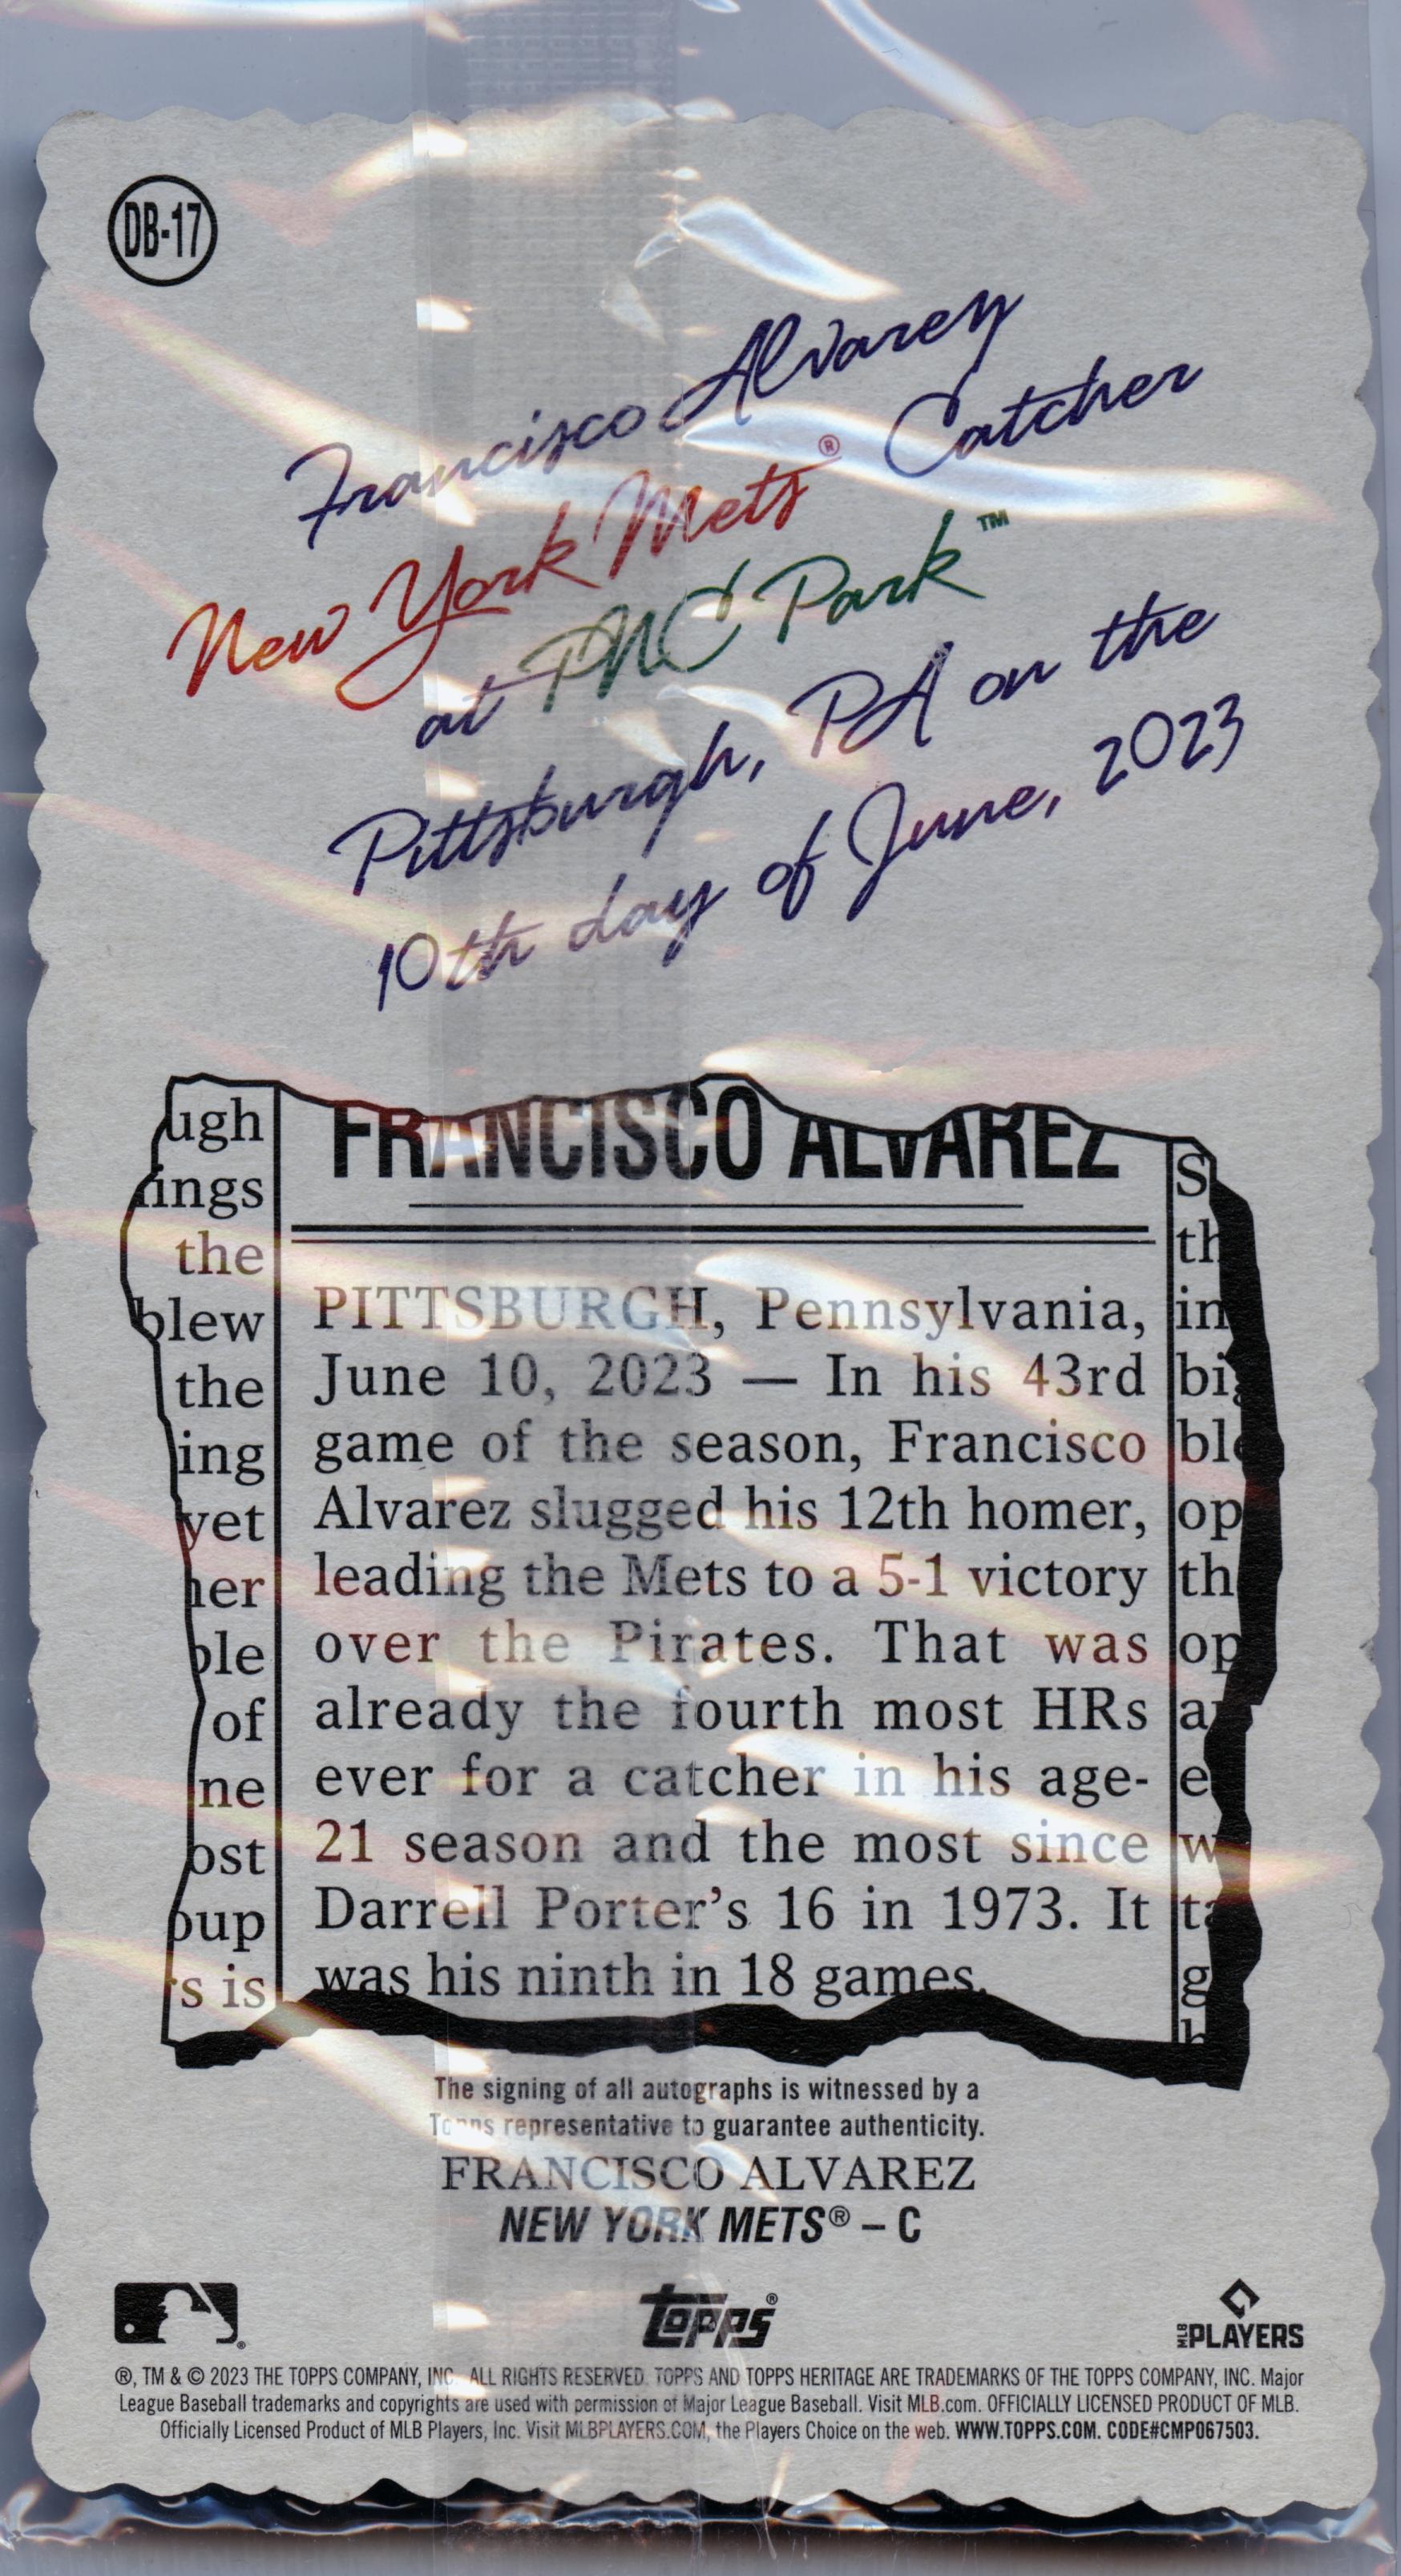 DB-17
Francisco Alvarez
New York Mets® Catcher
at PNC Park™
Pittsburgh, PA on the
10th day of June, 2023
FRANCISCO ALVAREZ
ugh
ings
the
blew
the
ing
yet
her
ble
of
ne
ost
oup
's is
PITTSBURGH, Pennsylvania,
June 10, 2023 — In his 43rd
game of the season, Francisco
Alvarez slugged his 12th homer,
leading the Mets to a 5-1 victory
over the Pirates. That was
already the fourth most HRs
ever for a catcher in his age-
21 season and the most since
Darrell Porter's 16 in 1973. It
was his ninth in 18 games.
S
th
in
bl
op
th
op
a
e
w
g
The signing of all autographs is witnessed by a
Topps representative to guarantee authenticity.
FRANCISCO ALVAREZ
NEW YORK METS® – C
topps®
MLB PLAYERS
®, TM & © 2023 THE TOPPS COMPANY, INC. ALL RIGHTS RESERVED. TOPPS AND TOPPS HERITAGE ARE TRADEMARKS OF THE TOPPS COMPANY, INC. Major
League Baseball trademarks and copyrights are used with permission of Major League Baseball. Visit MLB.com. OFFICIALLY LICENSED PRODUCT OF MLB.
Officially Licensed Product of MLB Players, Inc. Visit MLBPLAYERS.COM, the Players Choice on the web. WWW.TOPPS.COM. CODE#CMP067503.